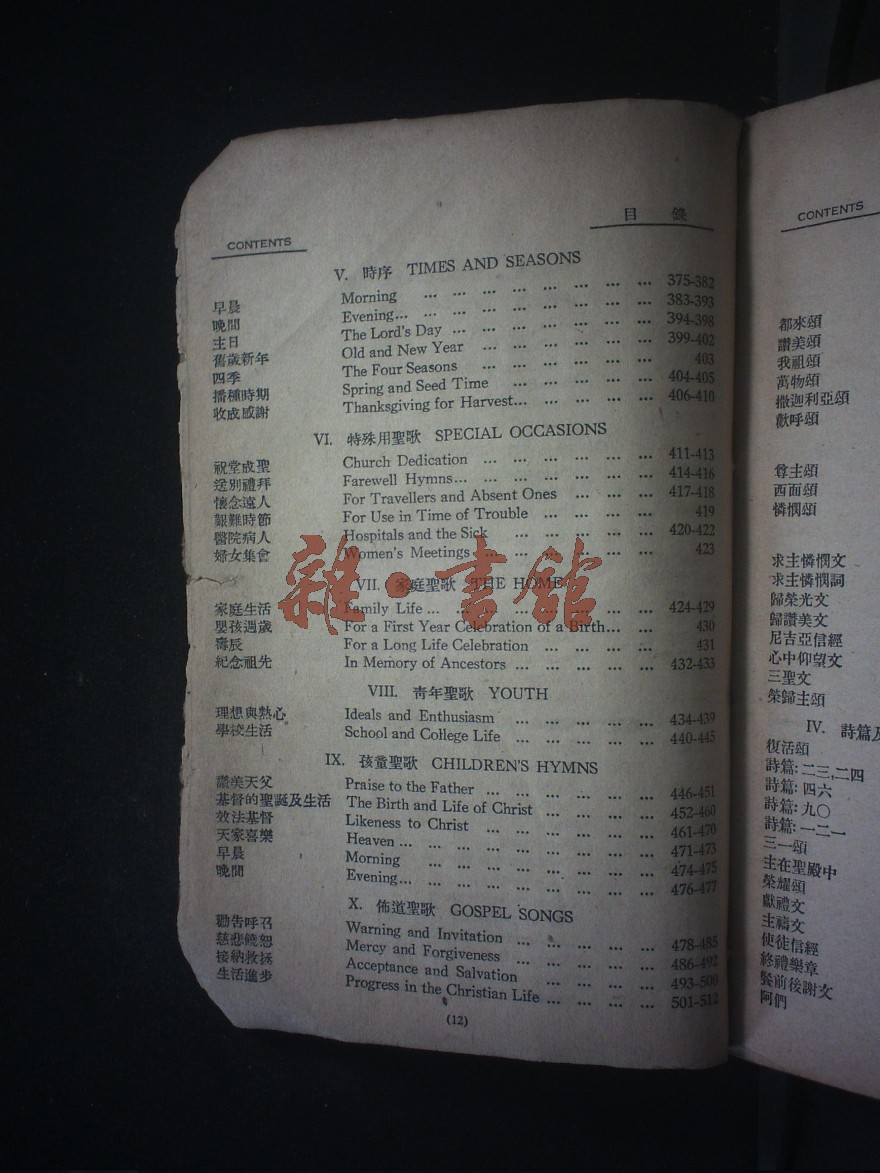 CONTENTS 目 錄
V. 時序 TIMES AND SEASONS
早晨 Morning ... ... ... ... ... ... ... ... 375-382
晚間 Evening... ... ... ... ... ... ... ... ... 383-393
主日 The Lord's Day ... ... ... ... ... ... ... 394-398
舊歲新年 Old and New Year ... ... ... ... ... ... 399-402
四季 The Four Seasons ... ... ... ... ... ... 403
播種時期 Spring and Seed Time ... ... ... ... ... 404-405
收成感謝 Thanksgiving for Harvest... ... ... ... ... 406-410
VI. 特殊用聖歌 SPECIAL OCCASIONS
祝堂成聖 Church Dedication ... ... ... ... ... ... 411-413
送別禮拜 Farewell Hymns... ... ... ... ... ... ... 414-416
懷念遠人 For Travellers and Absent Ones ... ... ... 417-418
艱難時節 For Use in Time of Trouble ... ... ... ... 419
醫院病人 Hospitals and the Sick ... ... ... ... ... 420-422
婦女集會 Women's Meetings ... ... ... ... ... ... 423
VII. 家庭聖歌 THE HOME
家庭生活 Family Life ... ... ... ... ... ... ... ... 424-429
嬰孩週歲 For a First Year Celebration of a Birth... ... 430
壽辰 For a Long Life Celebration ... ... ... ... 431
紀念祖先 In Memory of Ancestors ... ... ... ... ... 432-433
VIII. 青年聖歌 YOUTH
理想與熱心 Ideals and Enthusiasm ... ... ... ... ... 434-439
學校生活 School and College Life ... ... ... ... ... 440-445
IX. 孩童聖歌 CHILDREN'S HYMNS
讚美天父 Praise to the Father ... ... ... ... ... ... 446-451
基督的聖誕及生活 The Birth and Life of Christ ... ... ... ... 452-460
效法基督 Likeness to Christ ... ... ... ... ... ... 461-470
天家喜樂 Heaven ... ... ... ... ... ... ... ... ... 471-473
早晨 Morning ... ... ... ... ... ... ... ... 474-475
晚間 Evening... ... ... ... ... ... ... ... ... 476-477
X. 佈道聖歌 GOSPEL SONGS
勸告呼召 Warning and Invitation ... ... ... ... ... 478-485
慈悲饒恕 Mercy and Forgiveness ... ... ... ... ... 486-492
接納救拯 Acceptance and Salvation ... ... ... ... 493-500
生活進步 Progress in the Christian Life ... ... ... ... 501-512
(12)
雜·書館
CONTENTS
都來頌
讚美頌
我祖頌
萬物頌
撒迦利亞頌
歡呼頌
尊主頌
西面頌
憐憫頌
求主憐憫文
求主憐憫詞
歸榮光文
歸讚美文
尼吉亞信經
心中仰望文
三聖文
榮歸主頌
IV. 詩篇及
復活頌
詩篇: 二三, 二四
詩篇: 四六
詩篇: 九〇
詩篇: 一二一
三一頌
主在聖殿中
榮耀頌
獻禮文
主禱文
使徒信經
終禮樂章
餐前後謝文
阿們